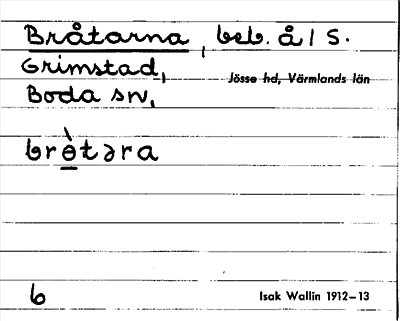 Bråtarna, beb. å/ S.
Grimstad,
Jösse hd, Värmlands län
Boda sn,
brɵ̀təra
6
Isak Wallin 1912–13